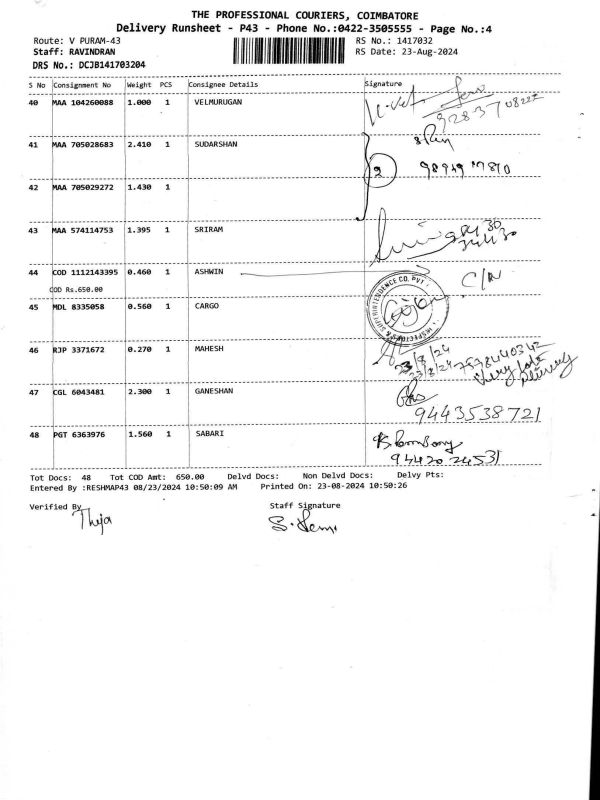 THE PROFESSIONAL COURIERS, COIMBATORE
Delivery Runsheet - P43 - Phone No.:0422-3505555 - Page No.:4
Route: V PURAM-43 RS No.: 1417032
Staff: RAVINDRAN RS Date: 23-Aug-2024
DRS No.: DCJB141703204
S No Consignment No Weight PCS Consignee Details Signature
40 MAA 104260088 1.000 1 VELMURUGAN
41 MAA 705028683 2.410 1 SUDARSHAN
42 MAA 705029272 1.430 1 2
43 MAA 574114753 1.395 1 SRIRAM
44 COD 1112143395 0.460 1 ASHWIN C/N
COD Rs.650.00
45 MDL 8335058 0.560 1 CARGO
46 RJP 3371672 0.270 1 MAHESH 23/8/24
23/8/24 7598440342
Very late
Delivery
47 CGL 6043481 2.300 1 GANESHAN
9443538721
48 PGT 6363976 1.560 1 SABARI
94420 24531
Tot Docs: 48 Tot COD Amt: 650.00 Delvd Docs: Non Delvd Docs: Delvy Pts:
Entered By :RESHMAP43 08/23/2024 10:50:09 AM Printed On: 23-08-2024 10:50:26
Verified By Staff Signature
Theja